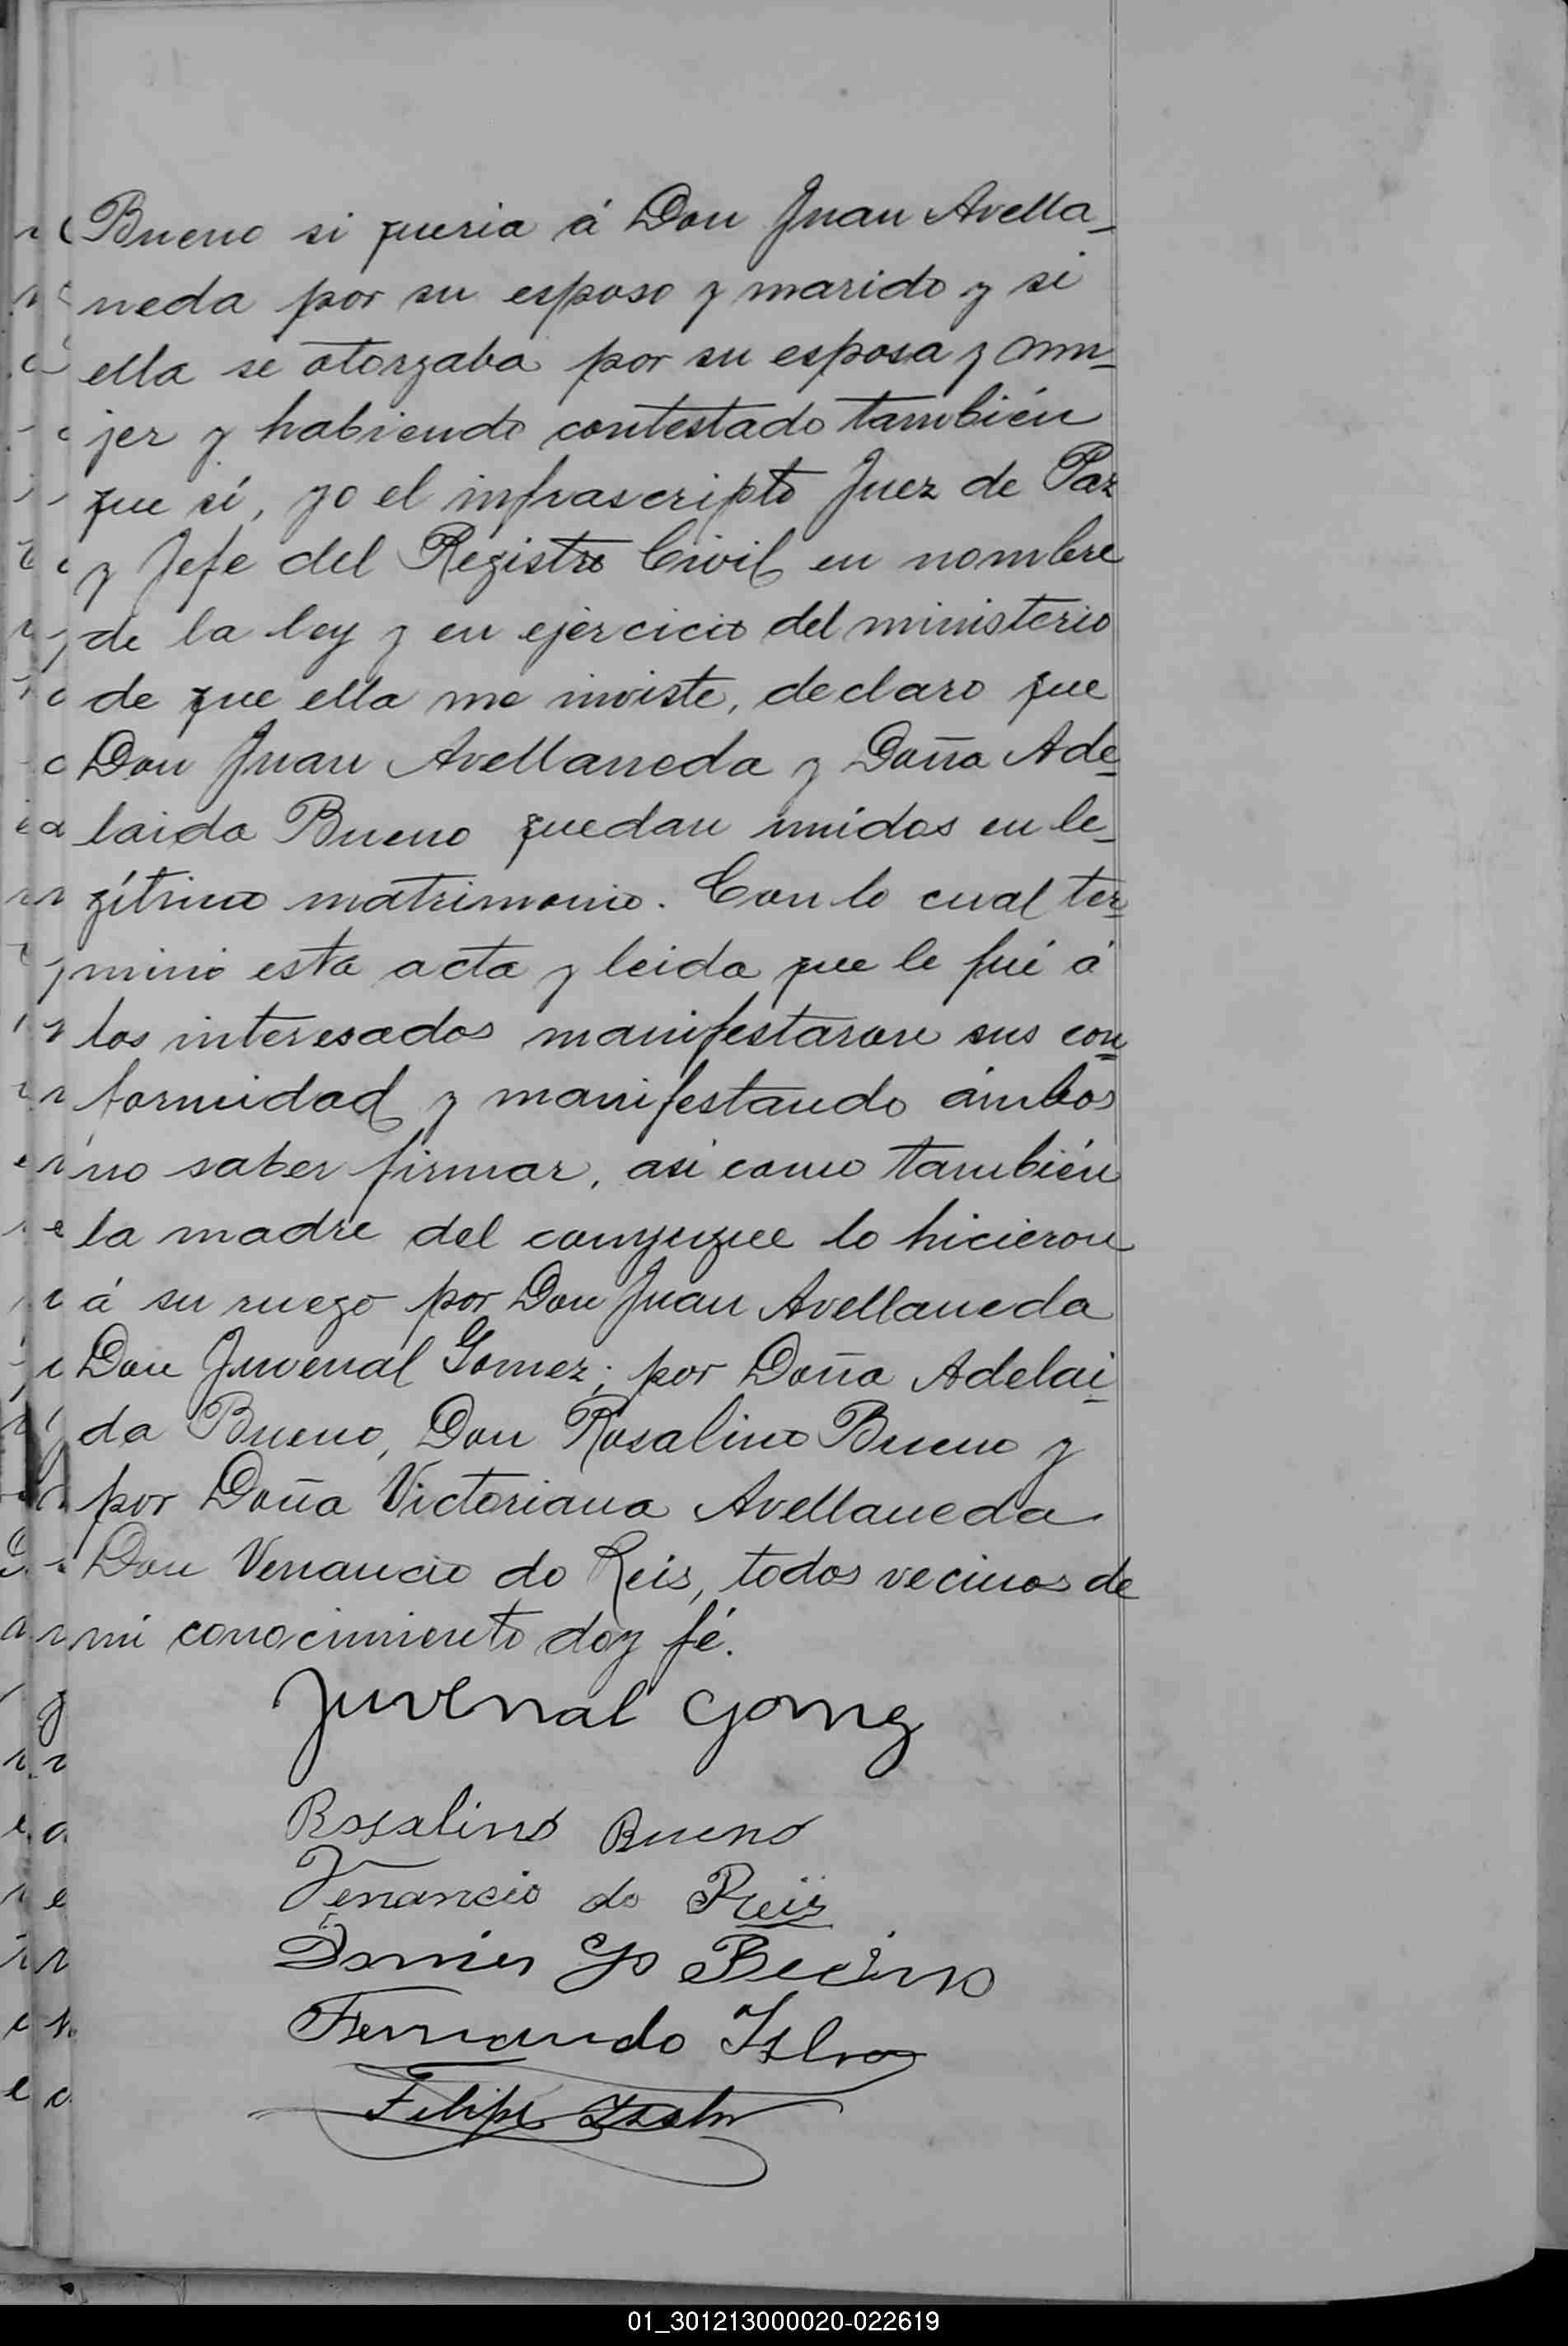 Bueno si queria á Don Juan Avella-
neda por su esposo y marido y si
ella se otorgaba por su esposa y mu-
jer y habiendo contestado también
que sí, yo el infrascripto Juez de Paz
y Jefe del Registro Civil en nombre
de la ley y en ejercicio del ministerio
de que ella me inviste, declaro que
Don Juan Avellaneda y Doña Ade-
laida Bueno quedan unidos en le-
gítimo matrimonio. Con lo cual ter-
minó esta acta y leida que le fué á
los interesados manifestaron sus con-
formidad y manifestando ámbos
no saber firmar, asi como también
la madre del conyugue lo hicieron
á su ruego por Don Juan Avellaneda
Don Juvenal Gomez; por Doña Adelai-
da Bueno, Don Rosalino Bueno y
por Doña Victoriana Avellaneda
Don Venancio do Reis, todos vecinos de
mi conocimiento doy fé.
Juvenal Gomez
Rosalino Bueno
Venancio do Reis
Fernando
Felipe
01_301213000020-022619